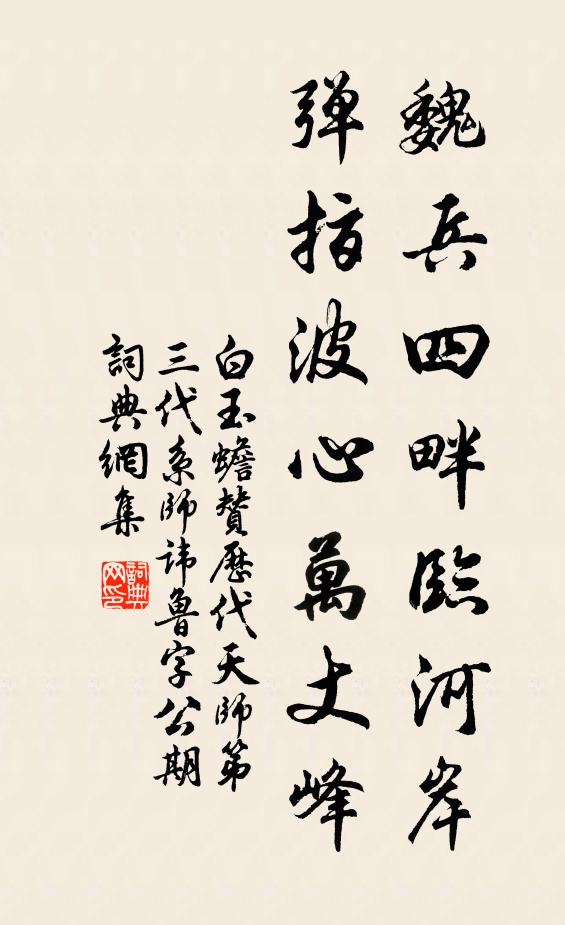 魏兵四畔臨河岸
彈指波心萬丈峰
白玉蟾贊歷代天師第
三代系師諱魯字公期
詞典網集
詞典网印